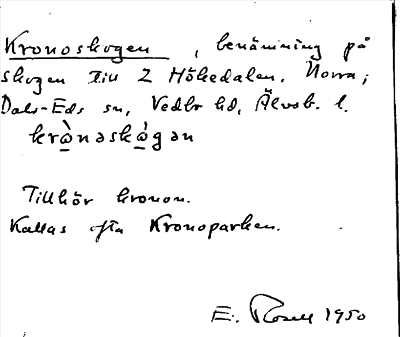 Kronoskogen, benämning på
skogen till 2 Hökedalen, Norra,
Dals-Eds sn, Vedbo hd, Älvsb. l.
krὼnəskώgən
Tillhör kronan.
Kallas ofta Kronoparken.
E. Rosell 1950